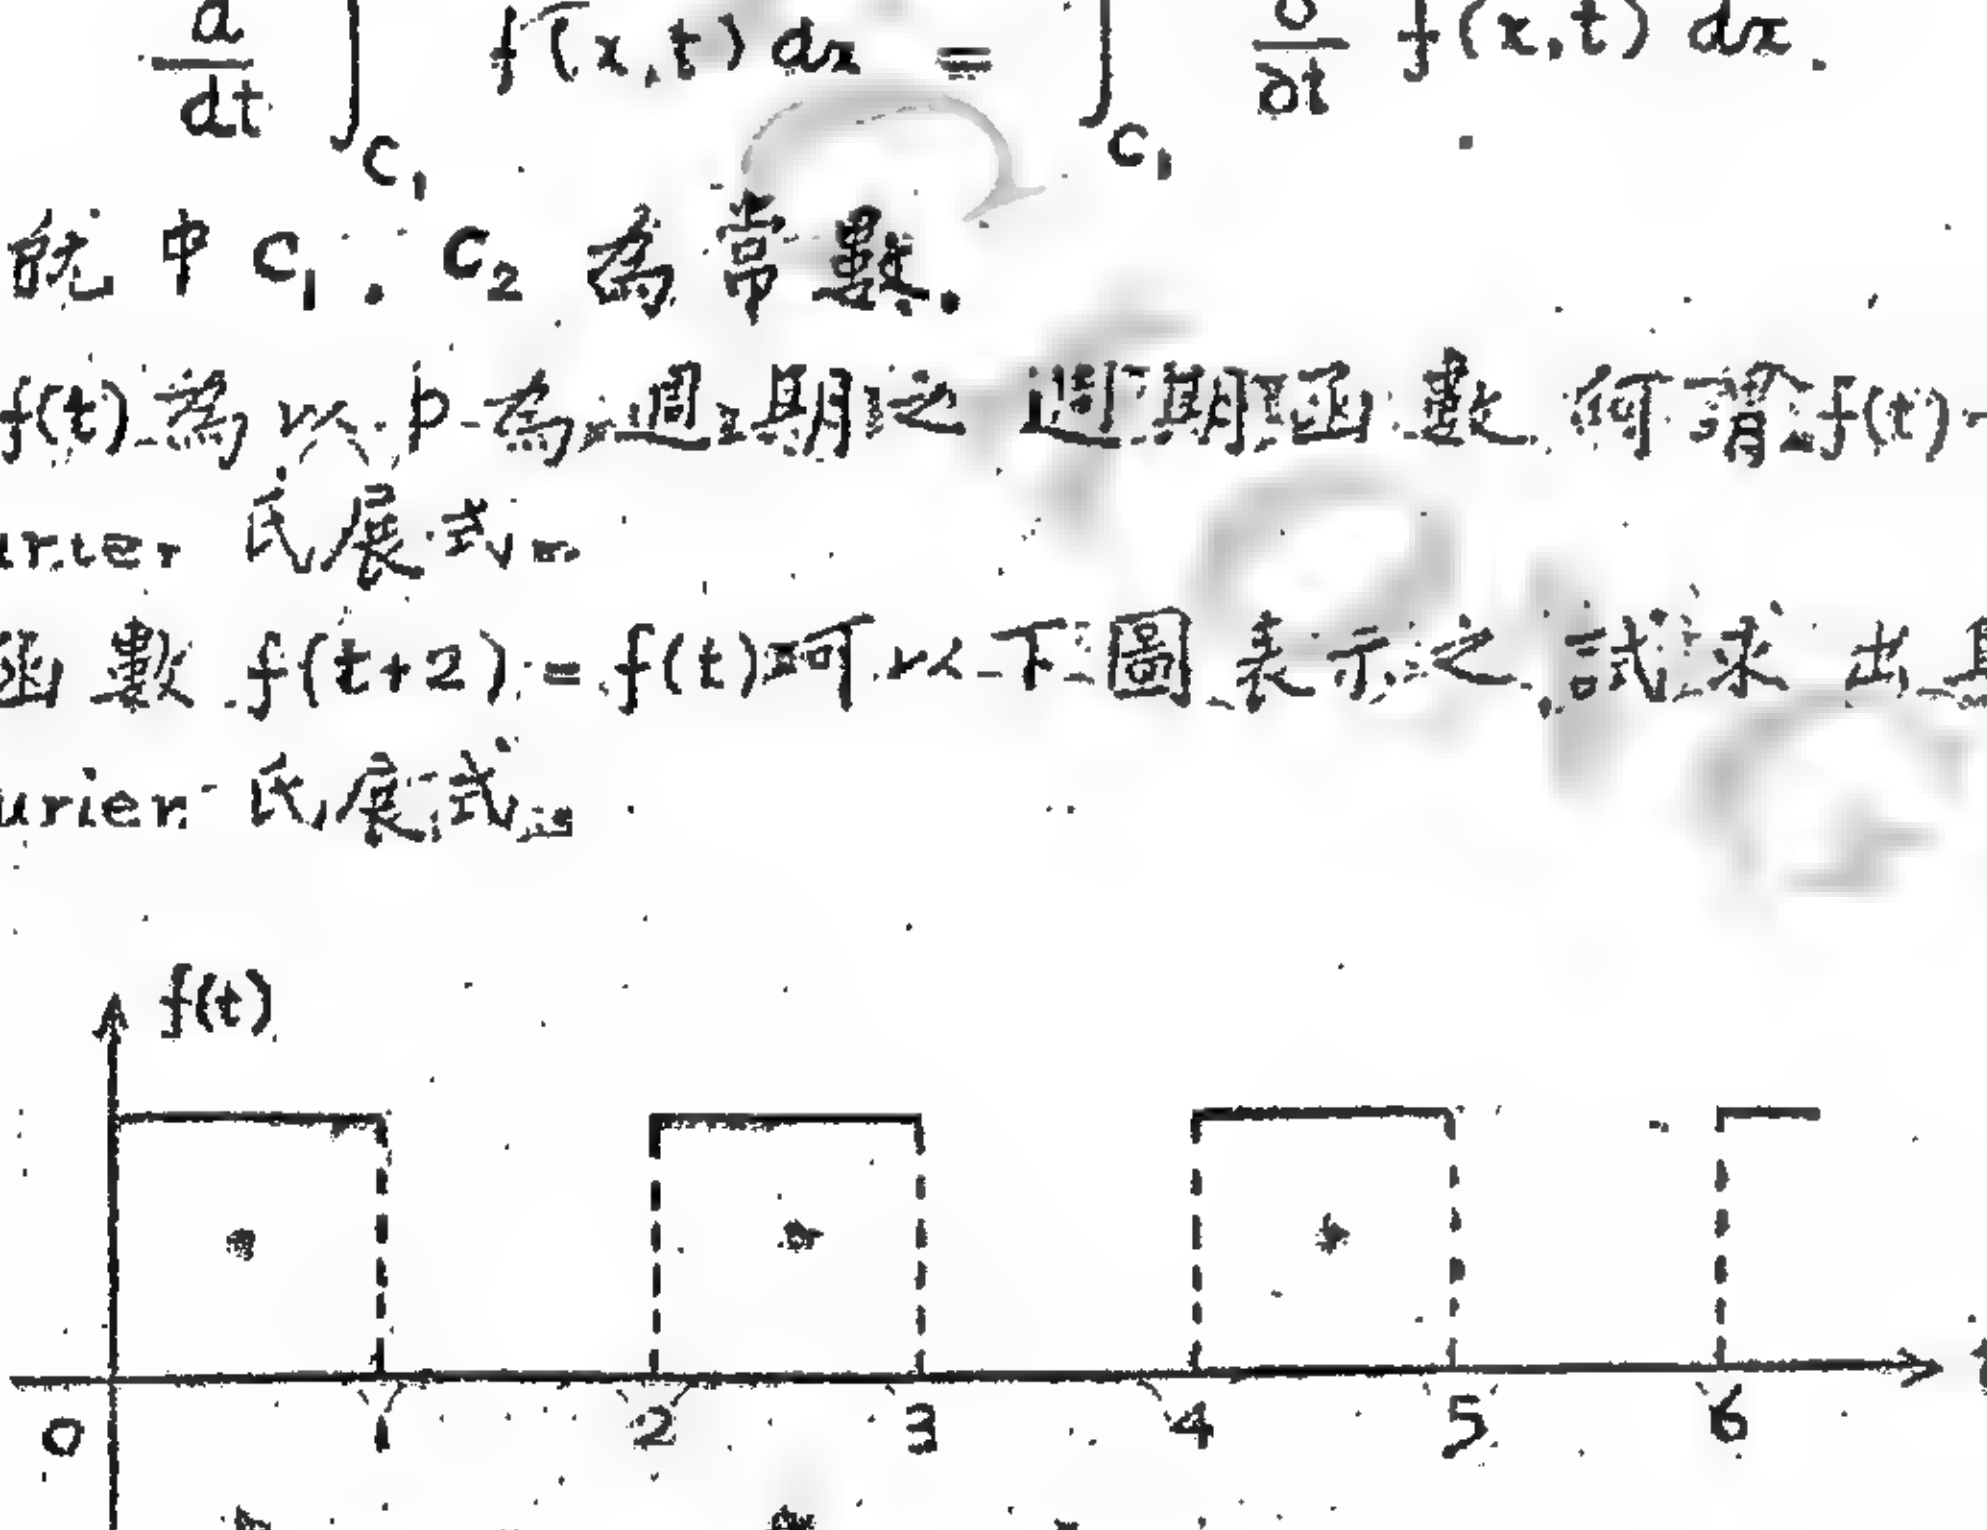 d/dt ∫_C₁ f(x,t) dx = ∫_C₁ ∂/∂t f(x,t) dx.
就中 C₁. C₂ 為常數.
f(t) 為以 p 為週期之週期函數 何謂 f(t)
urier 氏展式。
函數 f(t+2) = f(t) 可以下圖表示之 試求出其
urier 氏展式。
f(t)
0 1 2 3 4 5 6 t